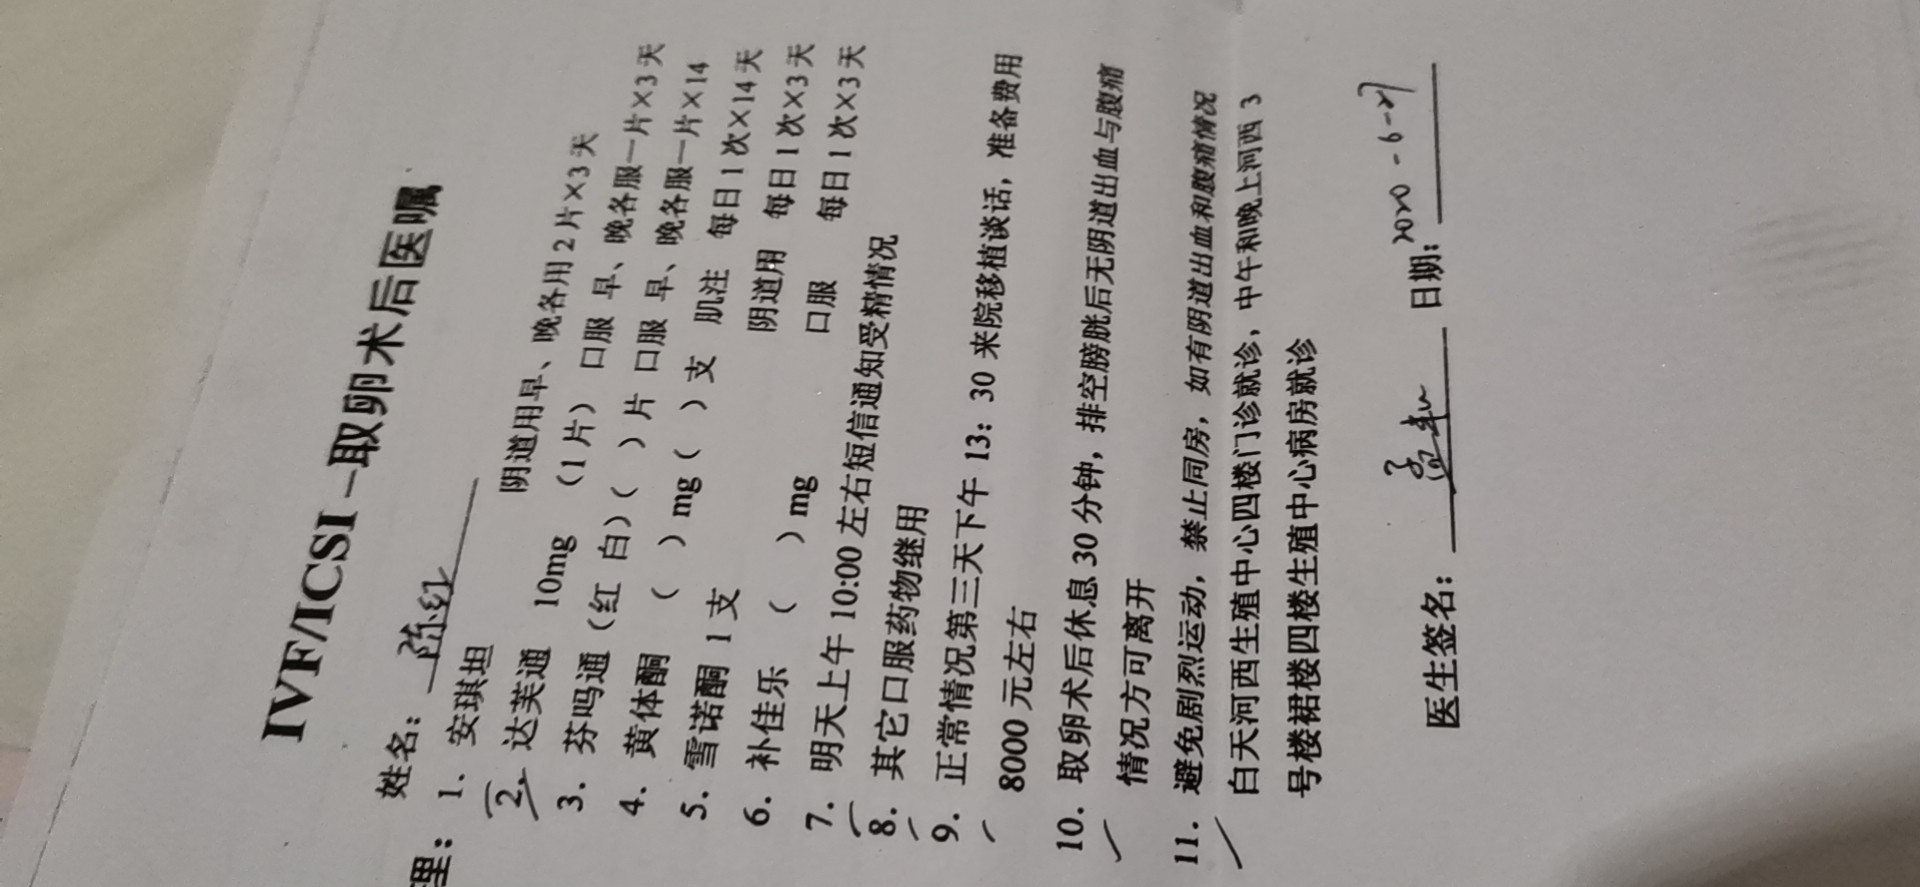 IVF/ICSI–取卵术后医嘱
姓名：陈红
理：
1、安琪坦 阴道用早、晚各用2片×3天
2、达芙通 10mg （1片） 口服 早、晚各服一片×3天
3．芬吗通（红 白）（ ）片 口服 早、晚各服一片×14
4．黄体酮 （ ）mg（ ）支 肌注 每日1次×14天
5．雪诺酮 1支 阴道用 每日1次×3天
6．补佳乐 （ ）mg 口服 每日1次×3天
7．明天上午10:00左右短信通知受精情况
8．其它口服药物继用
9．正常情况第三天下午13：30来院移植谈话，准备费用
8000元左右
10．取卵术后休息30分钟，排空膀胱后无阴道出血与腹痛
情况方可离开
11．避免剧烈运动，禁止同房，如有阴道出血和腹痛情况
白天河西生殖中心四楼门诊就诊，中午和晚上河西3
号楼裙楼四楼生殖中心病房就诊
医生签名： 日期：2020-6-27